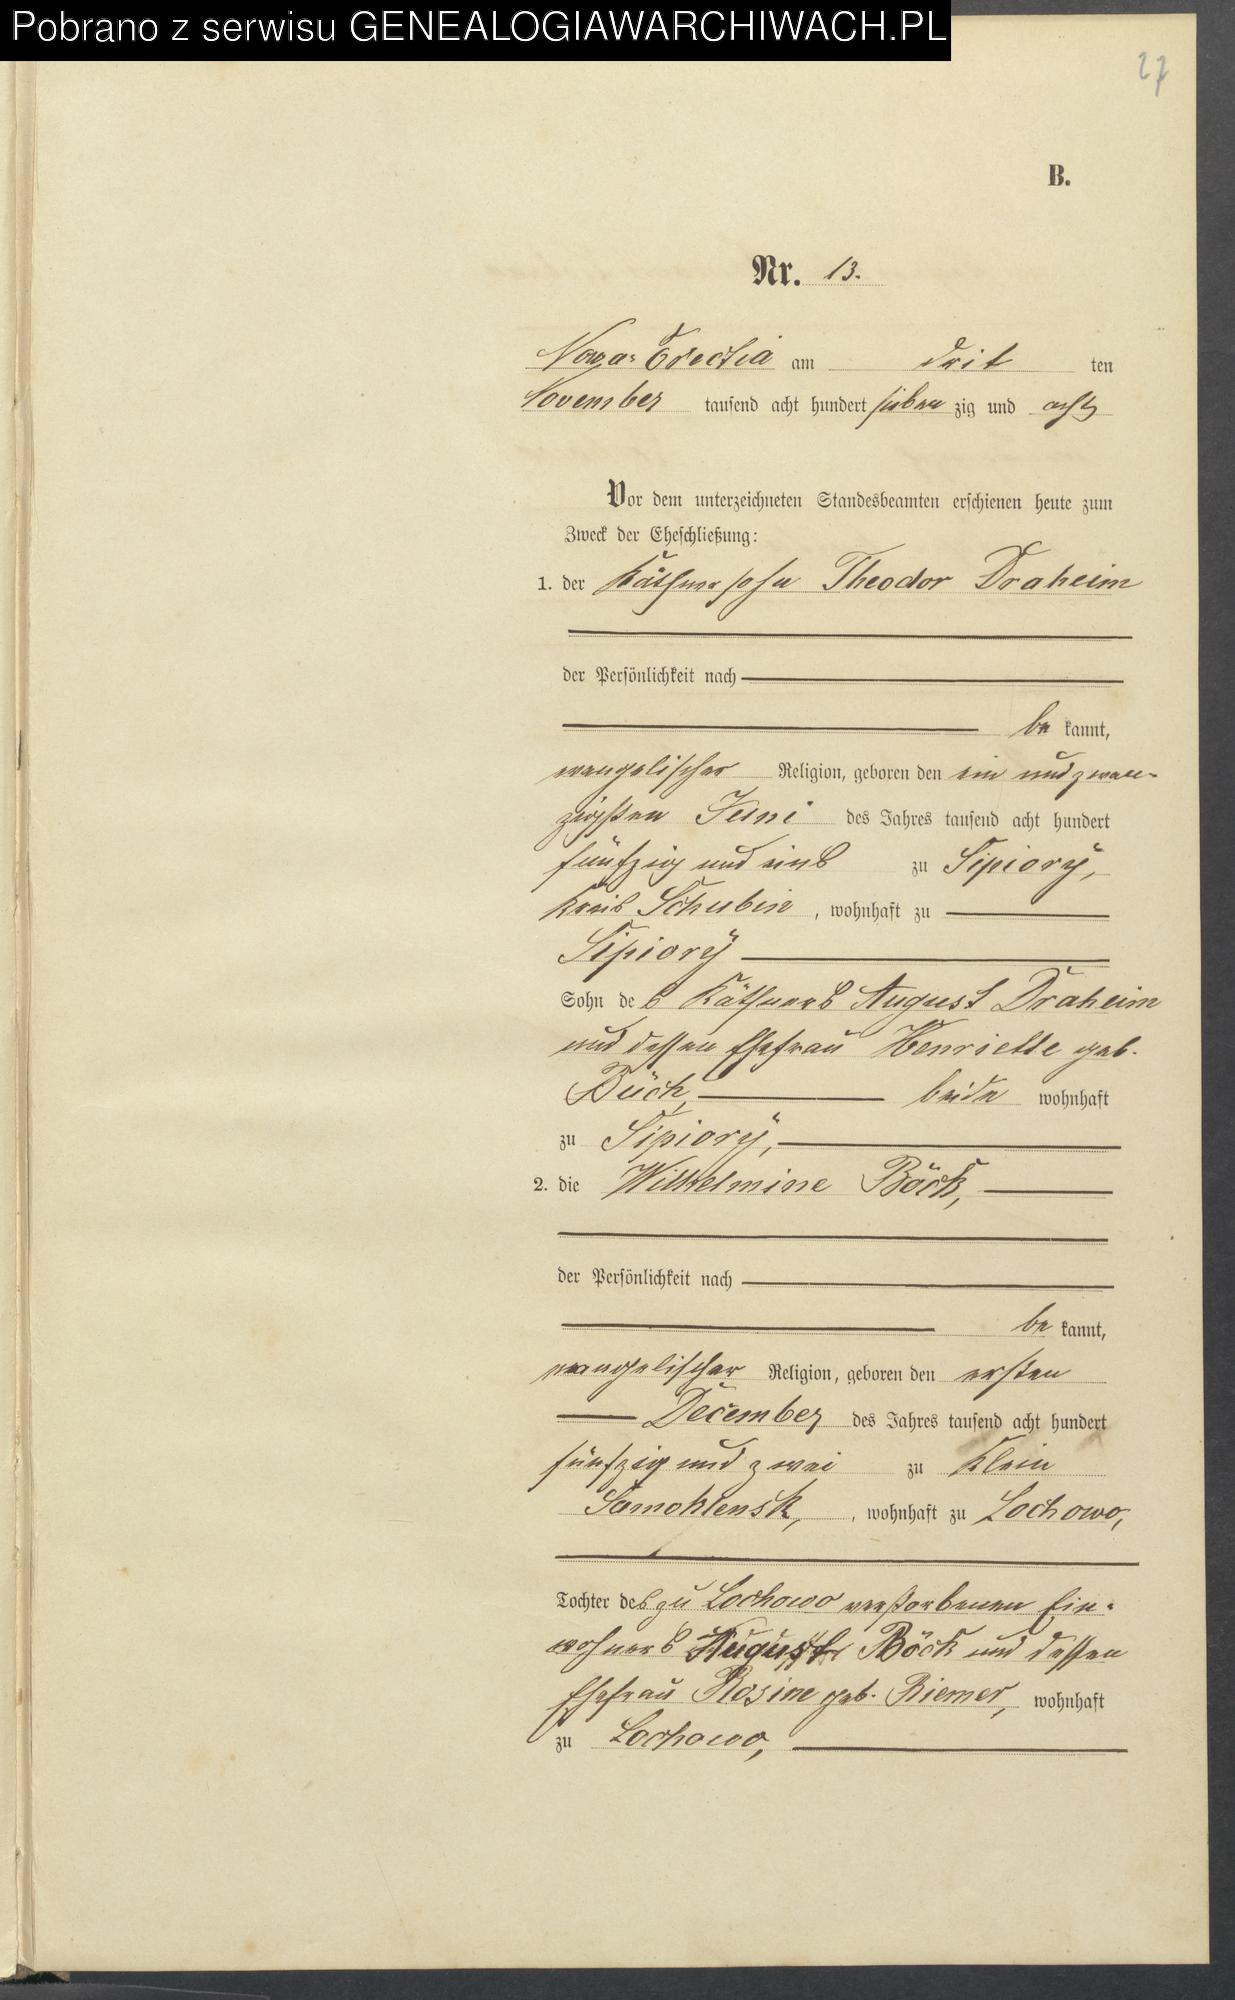 Pobrano z serwisu GENEALOGIAWARCHIWACH.PL
27
B.
Nr. 13.
Nova-Erectia am drit ten
November tausend acht hundert sieben zig und acht
Vor dem unterzeichneten Standesbeamten erschienen heute zum
Zweck der Eheschließung:
1. der Käthnersohn Theodor Draheim
der Persönlichkeit nach
be kannt,
evangelischer Religion, geboren den ein und zwan-
zigsten Juni des Jahres tausend acht hundert
fünfzig und eins zu Sipiory,
Kreis Schubin, wohnhaft zu
Sipiory
Sohn des Käthners August Draheim
und dessen Ehefrau Henriette geb.
Buch, beide wohnhaft
zu Sipiory,
2. die Wilhelmine Böck,
der Persönlichkeit nach
be kannt,
evangelischer Religion, geboren den ersten
December des Jahres tausend acht hundert
fünfzig und zwei zu Klein
Samoklensk, , wohnhaft zu Lochowo,
Tochter des zu Lochowo verstorbenen Ein-
wohners August Böck und dessen
Ehefrau Rosine geb. Riemer, wohnhaft
zu Lochowo,